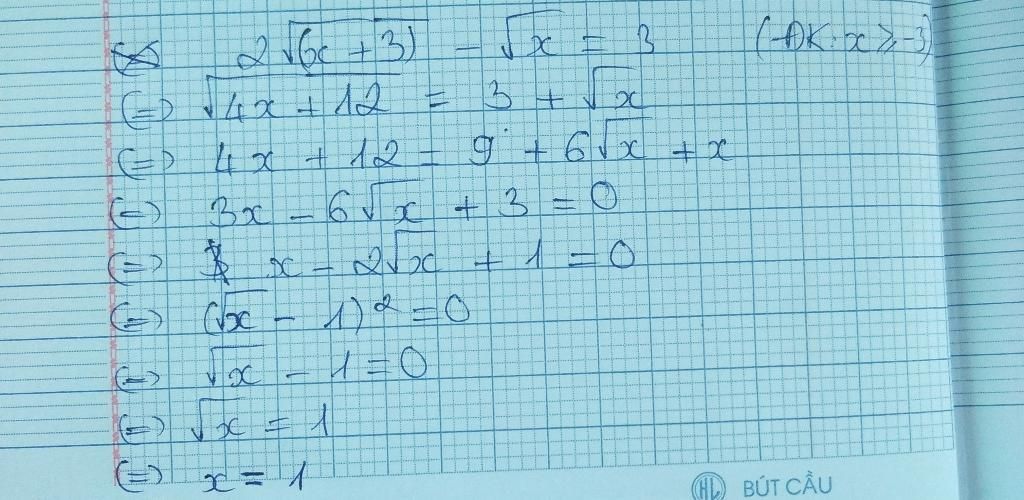 2√(x + 3) - √x = 3 (ĐK: x ≥ -3)
(=) √4x + 12 = 3 + √x
(=) 4x + 12 = 9 + 6√x + x
(=) 3x - 6√x + 3 = 0
(=) x - 2√x + 1 = 0
(=) (√x - 1)² = 0
(=) √x - 1 = 0
(=) √x = 1
(=) x = 1
HL BÚT CẦU